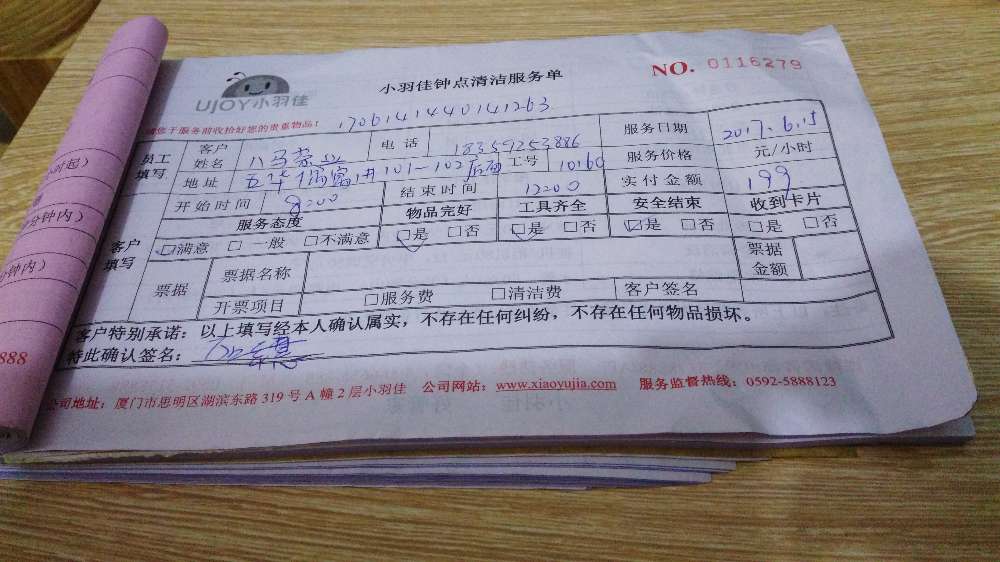 UJOY小羽佳
小羽佳钟点清洁服务单
NO. 0116279
您于服务前收拾好您的贵重物品!
1706141440141263
员工填写
客户姓名
电话 18359253886
服务日期 2017.6.15
地址 101-102
工号 1060
服务价格 元/小时
开始时间
结束时间 1200
实付金额 199
服务态度 物品完好 工具齐全 安全结束 收到卡片
客户填写
☑满意 □一般 □不满意 ☑是 □否 ☑是 □否 ☑是 □否 □是 □否
票据 票据名称 票据金额
开票项目 □服务费 □清洁费 客户签名
客户特别承诺:以上填写经本人确认属实,不存在任何纠纷,不存在任何物品损坏。
特此确认签名:
公司地址:厦门市思明区湖滨东路 319 号 A 幢 2 层小羽佳 公司网站:www.xiaoyujia.com 服务监督热线:0592-5888123
时起)
分钟内)
钟内)
888